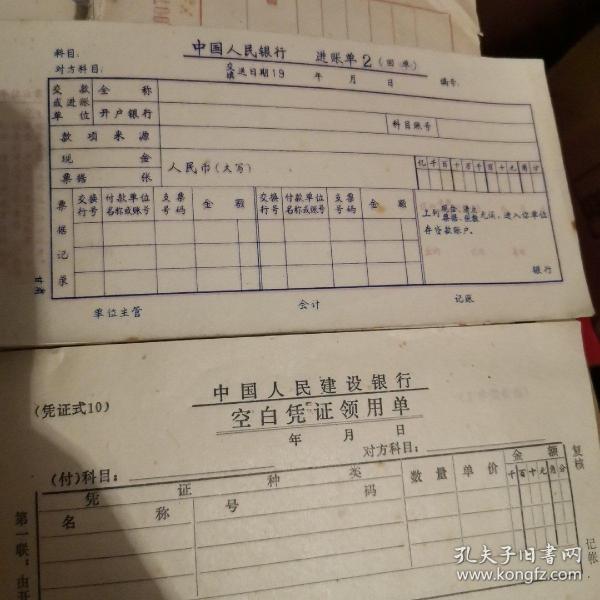 科目：
中国人民银行　进账单2（回单）
对方科目：
交送日期19　年　月　日　编号：
交款或进账单位
全称
开户银行
科目账号
款项来源
现金
票据　张
人民币（大写）
亿千百十万千百十元角分
票据记录
交换行号　付款单位名称或账号　支票号码　金额　交换行号　付款单位名称或账号　支票号码　金额
上列现金、票据无误，进入你单位存贷款账户。
银行
甘肃
单位主管　会计　记账
（凭证式10）
中国人民建设银行
空白凭证领用单
年　月　日
(付)科目：　对方科目：
凭证种类　数量　单价　金额
名称　号码　千百十元角分
复核
记帐
第一联：由开
孔夫子旧书网
www.kongfz.com